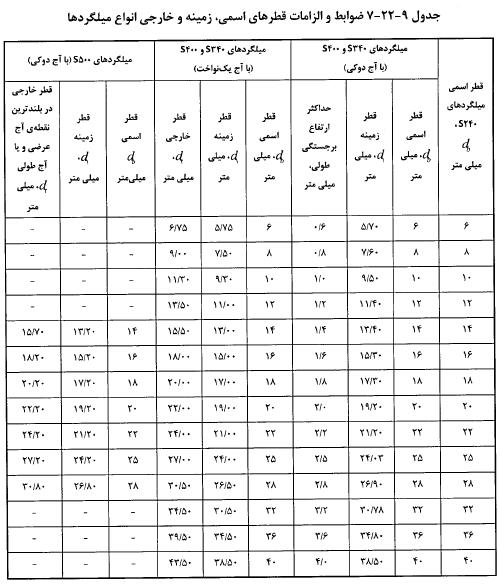 جدول ۹-۲۲-۷ ضوابط و الزامات قطرهای اسمی، زمینه و خارجی انواع میلگردها
قطر اسمی میلگردهای S۲۴۰، d_b میلی متر | میلگردهای S۳۴۰ و S۴۰۰ (با آج دوکی) | میلگردهای S۳۴۰ و S۴۰۰ (با آج یک‌نواخت) | میلگردهای S۵۰۰ (با آج دوکی)
قطر اسمی d_b، میلی متر | قطر زمینه d، میلی متر | حداکثر ارتفاع برجستگی طولی، میلی متر | قطر اسمی d_b، میلی متر | قطر زمینه d، میلی متر | قطر خارجی d، میلی متر | قطر اسمی d_b، میلی‌متر | قطر زمینه d، میلی متر | قطر خارجی در بلندترین نقطه‌ی آج عرضی و یا آج طولی d، میلی متر
۶ | ۶ | ۵/۷۰ | ۰/۶ | ۶ | ۵/۷۵ | ۶/۷۵ | – | – | –
۸ | ۸ | ۷/۶۰ | ۰/۸ | ۸ | ۷/۵۰ | ۹/۰۰ | – | – | –
۱۰ | ۱۰ | ۹/۵۰ | ۱/۰ | ۱۰ | ۹/۳۰ | ۱۱/۳۰ | – | – | –
۱۲ | ۱۲ | ۱۱/۴۰ | ۱/۲ | ۱۲ | ۱۱/۰۰ | ۱۳/۵۰ | – | – | –
۱۴ | ۱۴ | ۱۳/۴۰ | ۱/۴ | ۱۴ | ۱۳/۰۰ | ۱۵/۵۰ | ۱۴ | ۱۳/۲۰ | ۱۵/۷۰
۱۶ | ۱۶ | ۱۵/۳۰ | ۱/۶ | ۱۶ | ۱۵/۰۰ | ۱۸/۰۰ | ۱۶ | ۱۵/۲۰ | ۱۸/۲۰
۱۸ | ۱۸ | ۱۷/۳۰ | ۱/۸ | ۱۸ | ۱۷/۰۰ | ۲۰/۰۰ | ۱۸ | ۱۷/۲۰ | ۲۰/۲۰
۲۰ | ۲۰ | ۱۹/۲۰ | ۲/۰ | ۲۰ | ۱۹/۰۰ | ۲۲/۰۰ | ۲۰ | ۱۹/۲۰ | ۲۲/۲۰
۲۲ | ۲۲ | ۲۱/۲۰ | ۲/۲ | ۲۲ | ۲۱/۰۰ | ۲۴/۰۰ | ۲۲ | ۲۱/۲۰ | ۲۴/۲۰
۲۵ | ۲۵ | ۲۴/۰۳ | ۲/۵ | ۲۵ | ۲۴/۰۰ | ۲۷/۰۰ | ۲۵ | ۲۴/۲۰ | ۲۷/۲۰
۲۸ | ۲۸ | ۲۶/۹۰ | ۲/۸ | ۲۸ | ۲۶/۵۰ | ۳۰/۵۰ | ۲۸ | ۲۶/۸۰ | ۳۰/۸۰
۳۲ | ۳۲ | ۳۰/۷۸ | ۳/۲ | ۳۲ | ۳۰/۵۰ | ۳۴/۵۰ | – | – | –
۳۶ | ۳۶ | ۳۴/۸۰ | ۳/۶ | ۳۶ | ۳۴/۵۰ | ۳۹/۵۰ | – | – | –
۴۰ | ۴۰ | ۳۸/۵۰ | ۴/۰ | ۴۰ | ۳۸/۵۰ | ۴۳/۵۰ | – | – | –